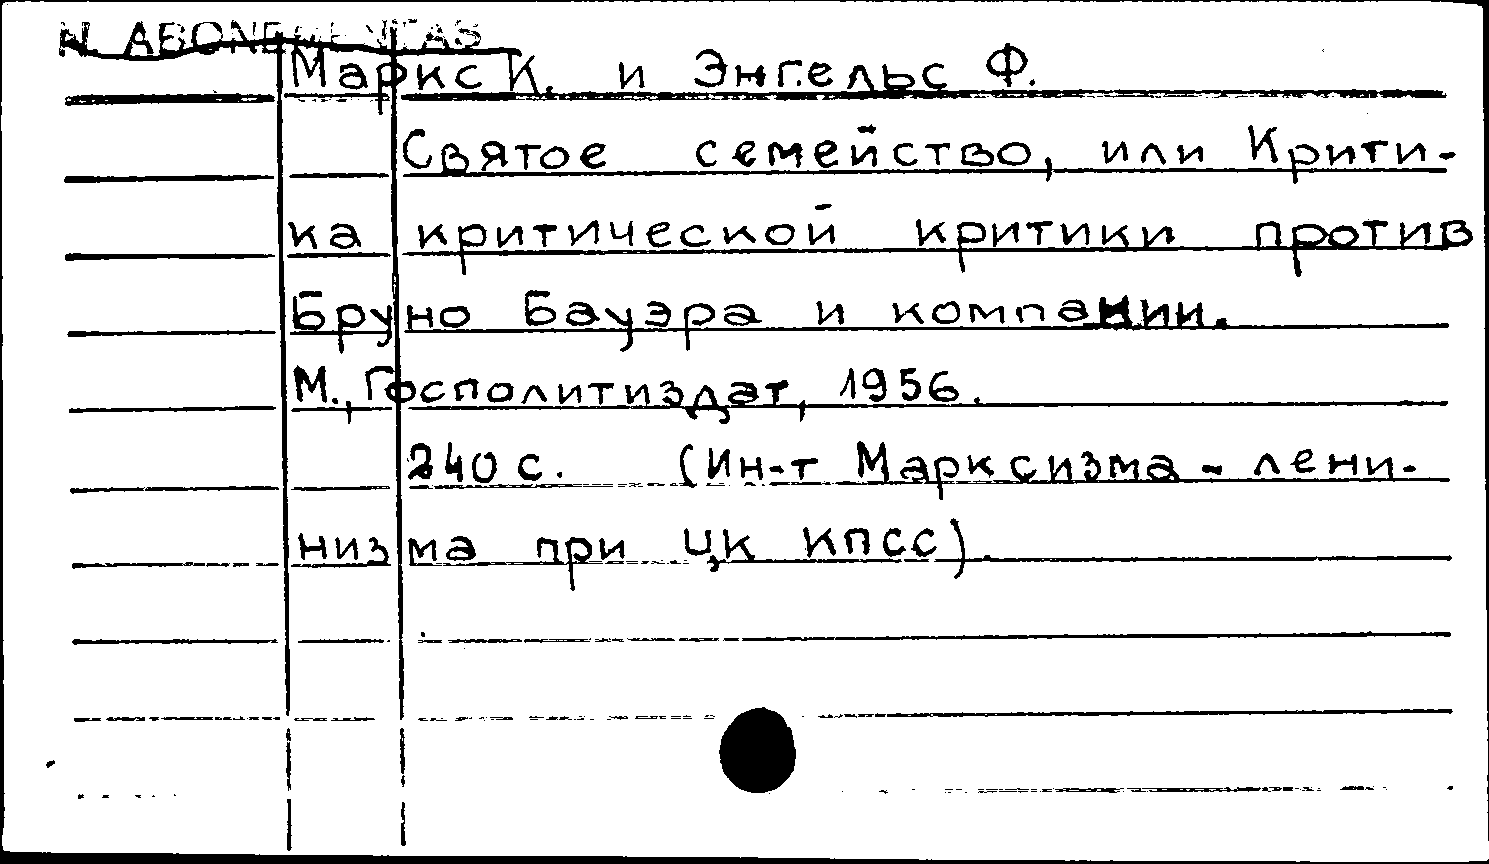 N. ABONEMENTAS
Маркс К. и Энгельс Ф.
Святое семейство, или Крити-
ка критической критики против
Бруно Бауэра и компании.
М., Госполитиздат, 1956.
240 с. (Ин-т Марксизма - лени-
низма при ЦК КПСС).